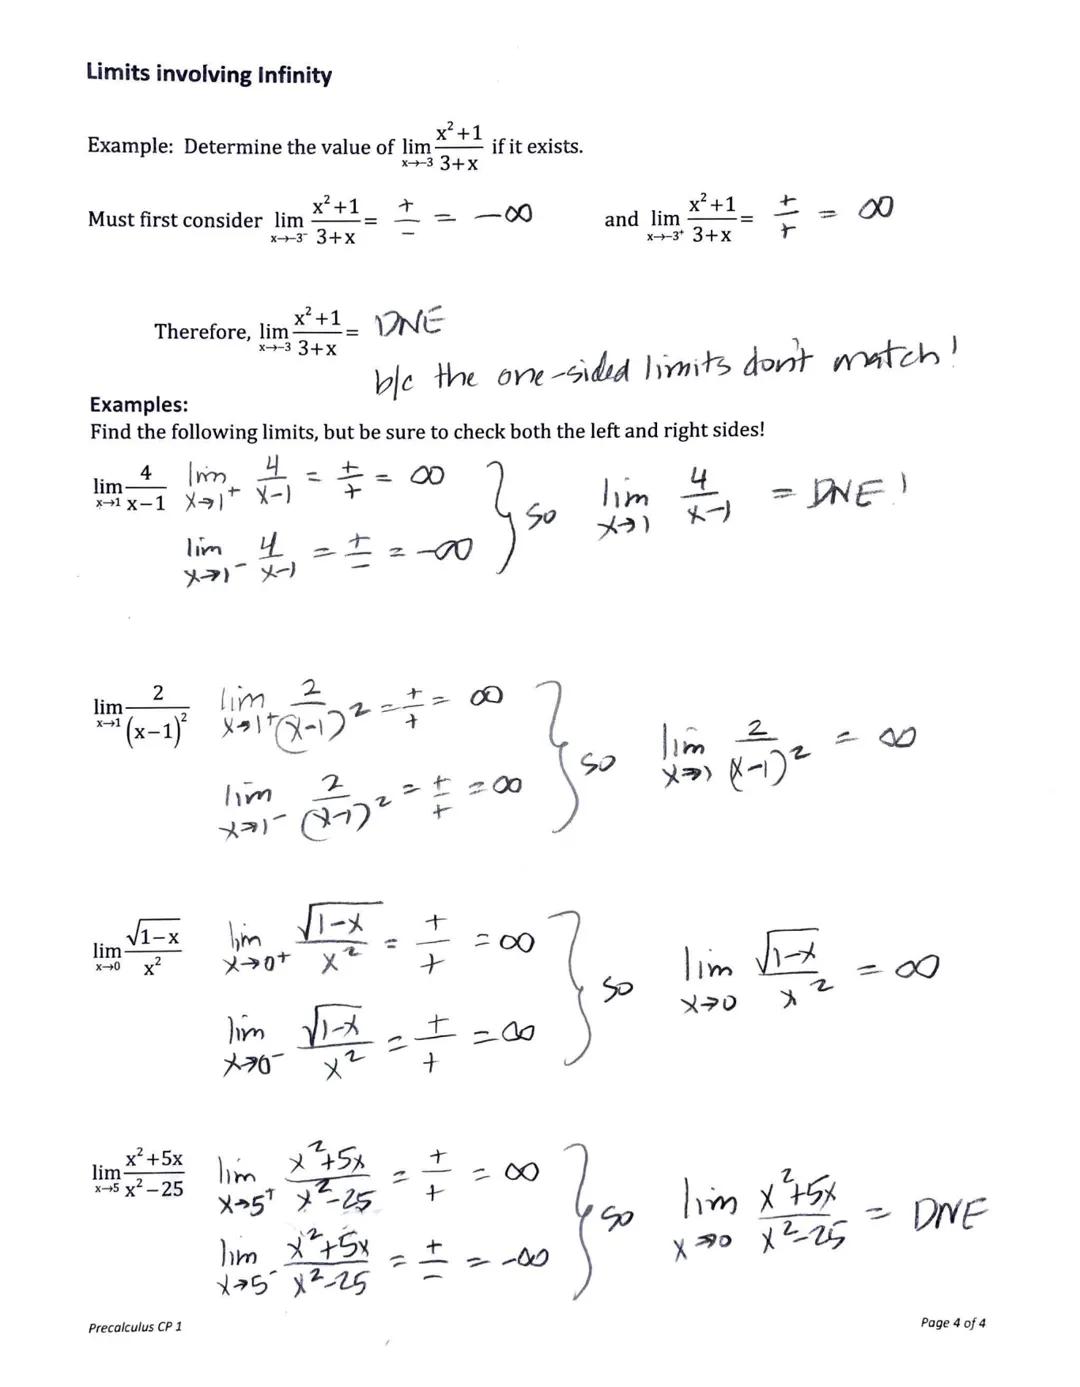 Limits involving Infinity
Example: Determine the value of lim x→-3 (x²+1)/(3+x) if it exists.
Must first consider lim x→-3⁻ (x²+1)/(3+x) = +/− = −∞ and lim x→-3⁺ (x²+1)/(3+x) = +/+ = ∞
Therefore, lim x→-3 (x²+1)/(3+x) = DNE
b/c the one-sided limits don't match!
Examples:
Find the following limits, but be sure to check both the left and right sides!
lim x→1 4/(x−1) lim x→1⁺ 4/(x−1) = +/+ = ∞ } so lim x→1 4/(x−1) = DNE!
lim x→1⁻ 4/(x−1) = +/− = −∞
lim x→1 2/(x−1)² lim x→1⁺ 2/(x−1)² = +/+ = ∞ } so lim x→1 2/(x−1)² = ∞
lim x→1⁻ 2/(x−1)² = +/+ = ∞
lim x→0 √(1−x)/x² lim x→0⁺ √(1−x)/x² = +/+ = ∞ } so lim x→0 √(1−x)/x² = ∞
lim x→0⁻ √(1−x)/x² = +/+ = ∞
lim x→5 (x²+5x)/(x²−25) lim x→5⁺ (x²+5x)/(x²−25) = +/+ = ∞ } so lim x→0 (x²+5x)/(x²−25) = DNE
lim x→5⁻ (x²+5x)/(x²−25) = +/− = −∞
Precalculus CP 1
Page 4 of 4